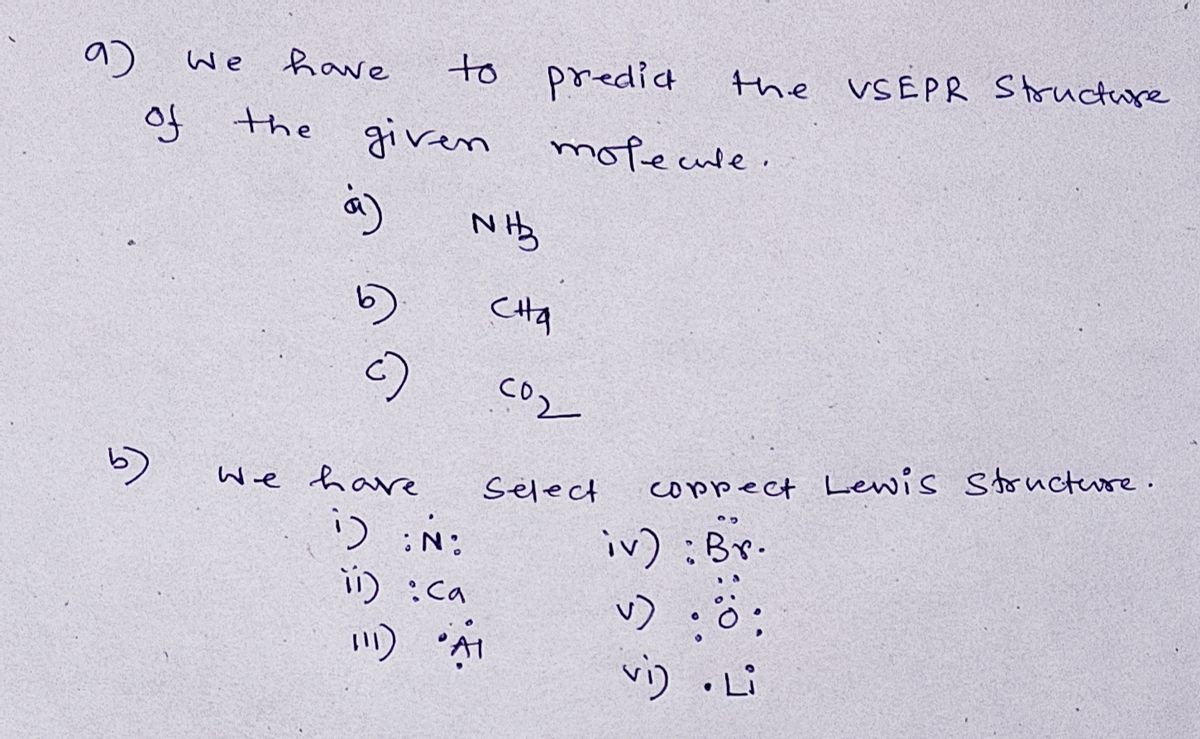 a) we have to predict the VSEPR Structure
of the given molecule.
a) NH3
b) CH4
c) CO2
b) we have select correct Lewis structure.
i) :N: iv) :Br.
ii) :Ca v) .O:
iii) .Al vi) .Li